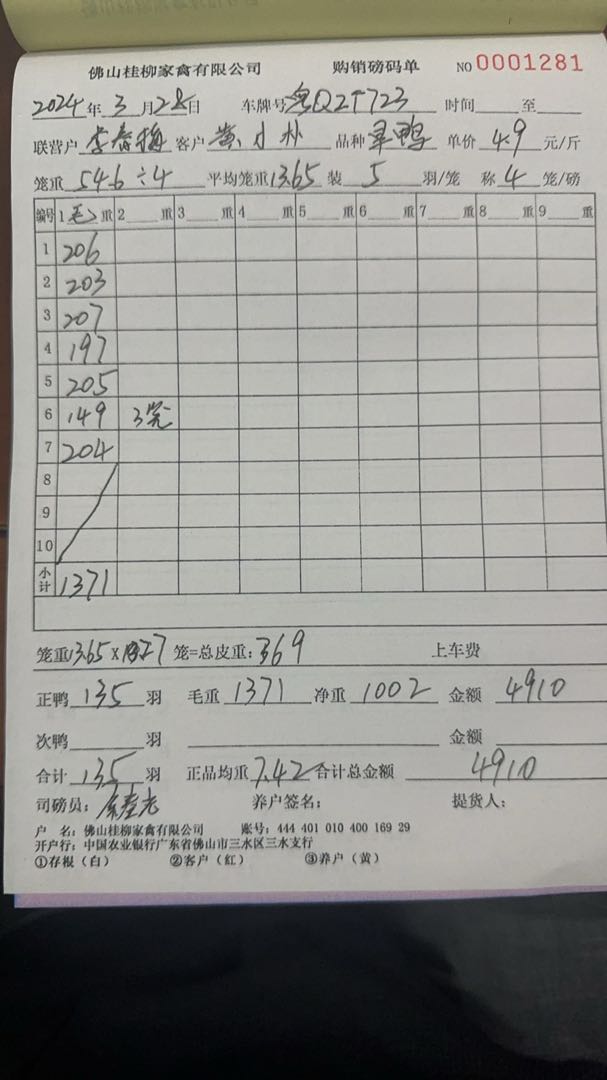 佛山桂柳家禽有限公司 购销磅码单 NO 0001281
2024年3月28日 车牌号粤Q2T723 时间 至
联营户 李春梅 客户 黄小朴 品种 鸭 单价 4.9 元/斤
笼重 54.6÷4 平均笼重13.65 装 5 羽/笼 称 4 笼/磅
编号 1 毛 重 2 重 3 重 4 重 5 重 6 重 7 重 8 重 9 重
1 206
2 203
3 207
4 197
5 205
6 149 3笼
7 204
8
9
10
小计 1371
笼重13.65× 笼=总皮重:369 上车费
正鸭 135 羽 毛重 1371 净重 1002 金额 4910
次鸭 羽 金额
合计 135 羽 正品均重 7.42 合计总金额 4910
司磅员: 养户签名: 提货人:
户 名:佛山桂柳家禽有限公司 账号:444 401 010 400 169 29
开户行:中国农业银行广东省佛山市三水区三水支行
①存根(白) ②客户(红) ③养户(黄)